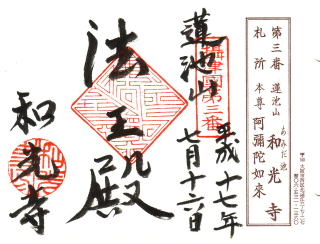 第三番 蓮池山
あみだ池
和光寺
札所 本尊 阿彌陀如來
平成十七年
七月十六日
摂津国第三番
蓮池山
法王殿
和光寺